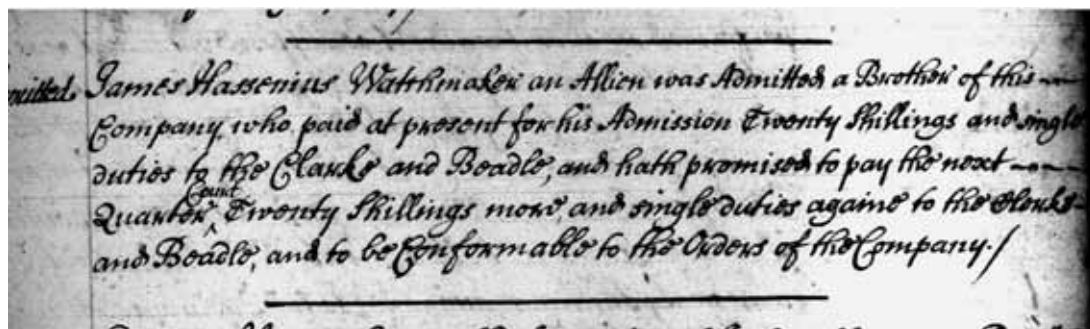 James Hassenius Watchmaker an Allien was Admitted a Brother of this
Company, who paid at present for his Admission Twenty Shillings and single
duties to the Clarke and Beadle, and hath promised to pay the next
Quarter Court Twenty Shillings more, and single duties againe to the Clerke
and Beadle, and to be Conformable to the Orders of the Company./